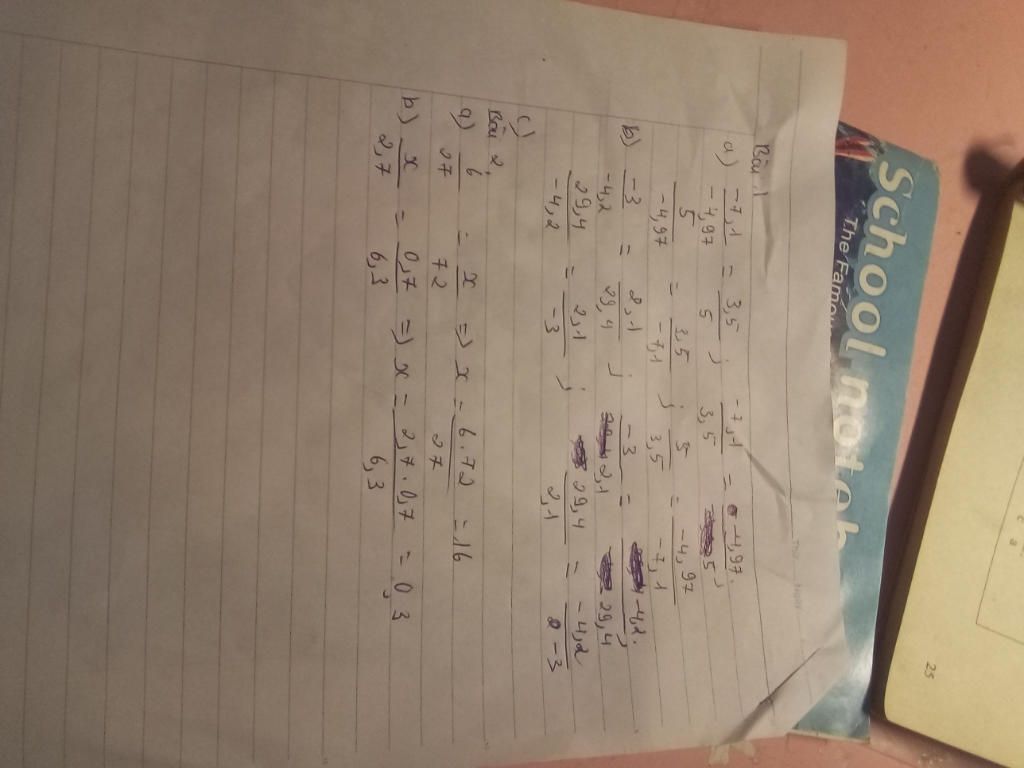 Bài 1
a) -7,1/-4,97 = 3,5/5 ; -7,1/3,5 = -4,97/5 ;
5/-4,97 = 3,5/-7,1 ; 5/3,5 = -4,97/-7,1
b) -3/-4,2 = 2,1/29,4 ; -3/2,1 = -4,2/29,4 ;
29,4/-4,2 = 2,1/-3 ; 29,4/2,1 = -4,2/-3
c)
Bài 2,
a) 6/27 = x/72 => x = 6.72/27 = 16
b) x/2,7 = 0,7/6,3 => x = 2,7.0,7/6,3 = 0,3
School
The
25